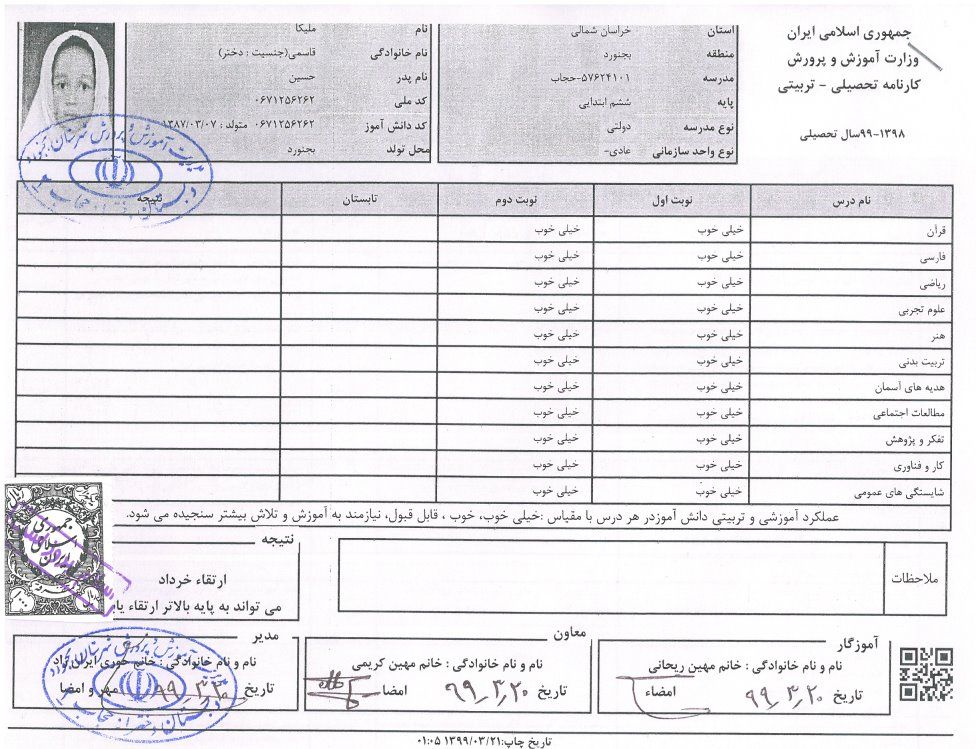 جمهوری اسلامی ایران
وزارت آموزش و پرورش
کارنامه تحصیلی - تربیتی
۱۳۹۸-۹۹سال تحصیلی
استان خراسان شمالی
منطقه بجنورد
مدرسه ۵۷۶۲۴۱۰۱-حجاب
پایه ششم ابتدایی
نوع مدرسه دولتی
نوع واحد سازمانی عادی-
نام ملیکا
نام خانوادگی قاسمی(جنسیت : دختر)
نام پدر حسین
کد ملی ۰۶۷۱۲۵۶۲۶۲
کد دانش آموز ۰۶۷۱۲۵۶۲۶۲ متولد : ۱۳۸۷/۰۳/۰۷
محل تولد بجنورد
نام درس نوبت اول نوبت دوم تابستان نتیجه
قرآن خیلی خوب خیلی خوب
فارسی خیلی خوب خیلی خوب
ریاضی خیلی خوب خیلی خوب
علوم تجربی خیلی خوب خیلی خوب
هنر خیلی خوب خیلی خوب
تربیت بدنی خیلی خوب خیلی خوب
هدیه های آسمان خیلی خوب خیلی خوب
مطالعات اجتماعی خیلی خوب خیلی خوب
تفکر و پژوهش خیلی خوب خیلی خوب
کار و فناوری خیلی خوب خیلی خوب
شایستگی های عمومی خیلی خوب خیلی خوب
عملکرد آموزشی و تربیتی دانش آموزدر هر درس با مقیاس :خیلی خوب، خوب ، قابل قبول، نیازمند به آموزش و تلاش بیشتر سنجیده می شود.
ملاحظات
نتیجه
ارتقاء خرداد
می تواند به پایه بالاتر ارتقاء یابد
جمهوری
اسلامی
ایران
آموزگار
نام و نام خانوادگی : خانم مهین ریحانی
تاریخ ۹۹_۳_۲۰ امضاء
معاون
نام و نام خانوادگی : خانم مهین کریمی
تاریخ ۹۹_۳_۲۰ امضاء
مدیر
نام و نام خانوادگی : خانم حوری ایران نژاد
تاریخ ۹۹_۳_۲۰ مهر و امضا
مدیریت آموزش و پرورش شهرستان بجنورد
دبستان دخترانه حجاب
تاریخ چاپ:۱۳۹۹/۰۳/۲۱ ۰۱:۰۵